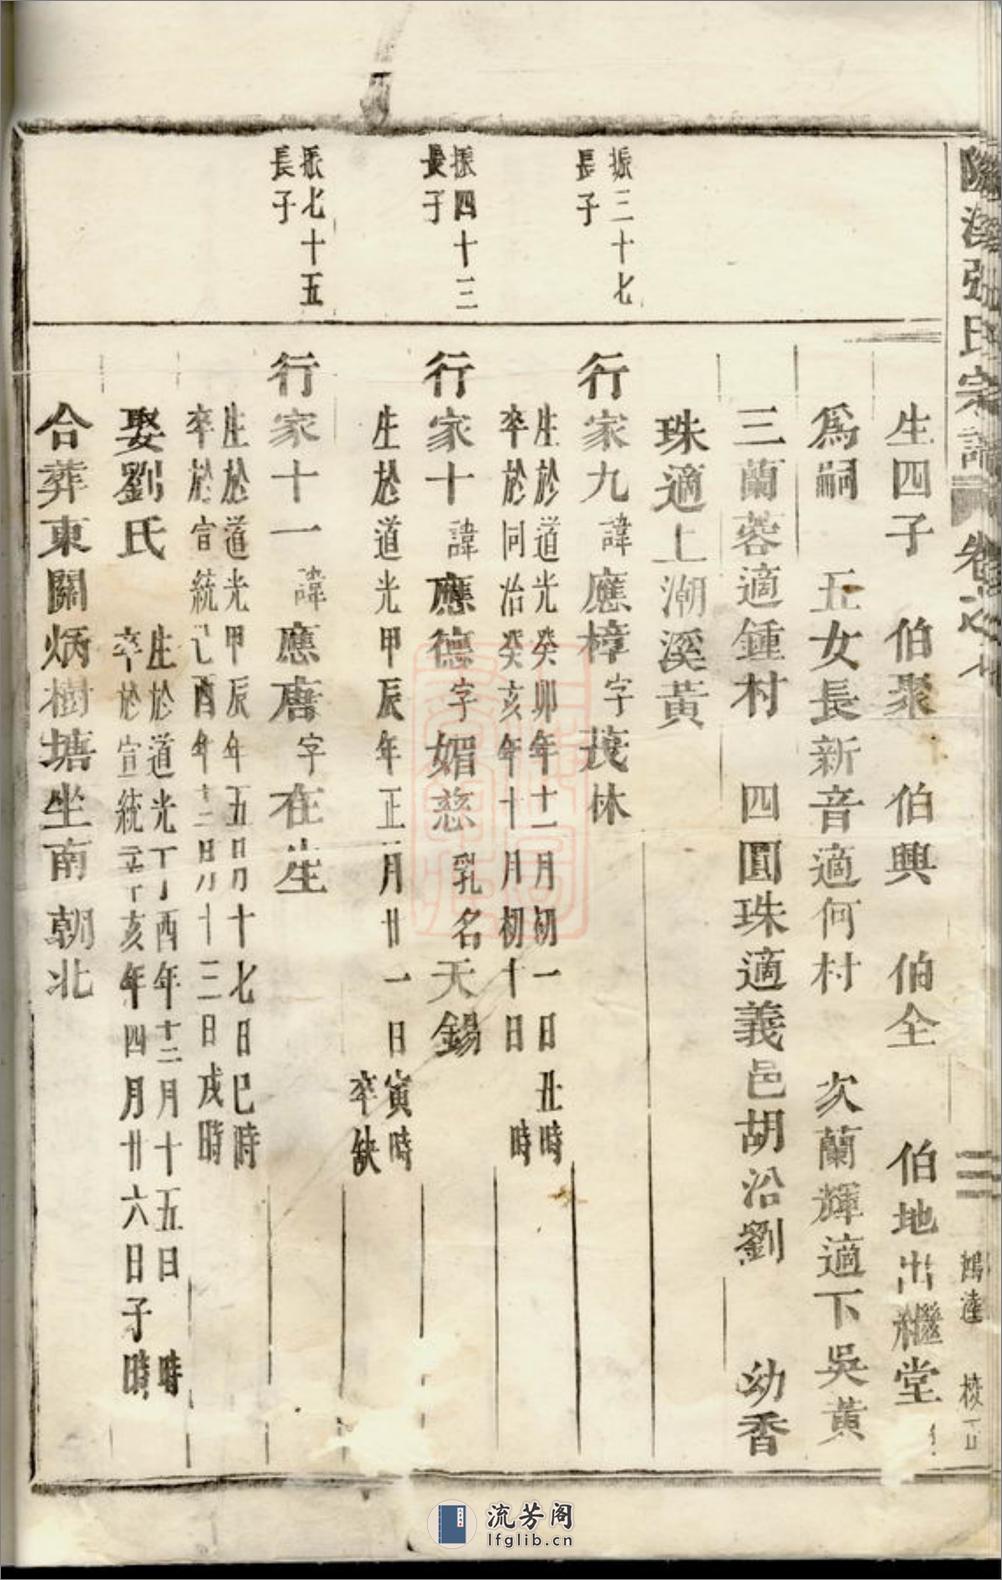 張氏宗譜 卷之七
生四子 伯聚 伯興 伯全 伯地出繼堂
為嗣 五女長新音適何村 次蘭輝適下吳黃
三蘭蓉適鍾村 四圓珠適義邑胡沿劉 幼香
珠適上潮溪黃
振三十七
長子
行家九諱應樟字莀林
生於道光癸卯年十一月初一日丑時
卒於同治癸亥年十月初十日 時
振四十三
長子
行家十諱應德字媚慈乳名天錫
生於道光甲辰年正月廿一日寅時
卒缺
振七十五
長子
行家十一諱應唐字在生
生於道光甲辰年五月十七日巳時
卒於宣統己酉年十二月十三日戌時
娶劉氏
生於道光丁酉年十二月十五日 時
卒於宣統辛亥年四月廿六日子時
合葬東關炳樹塘坐南朝北
流芳阁
lfglib.cn